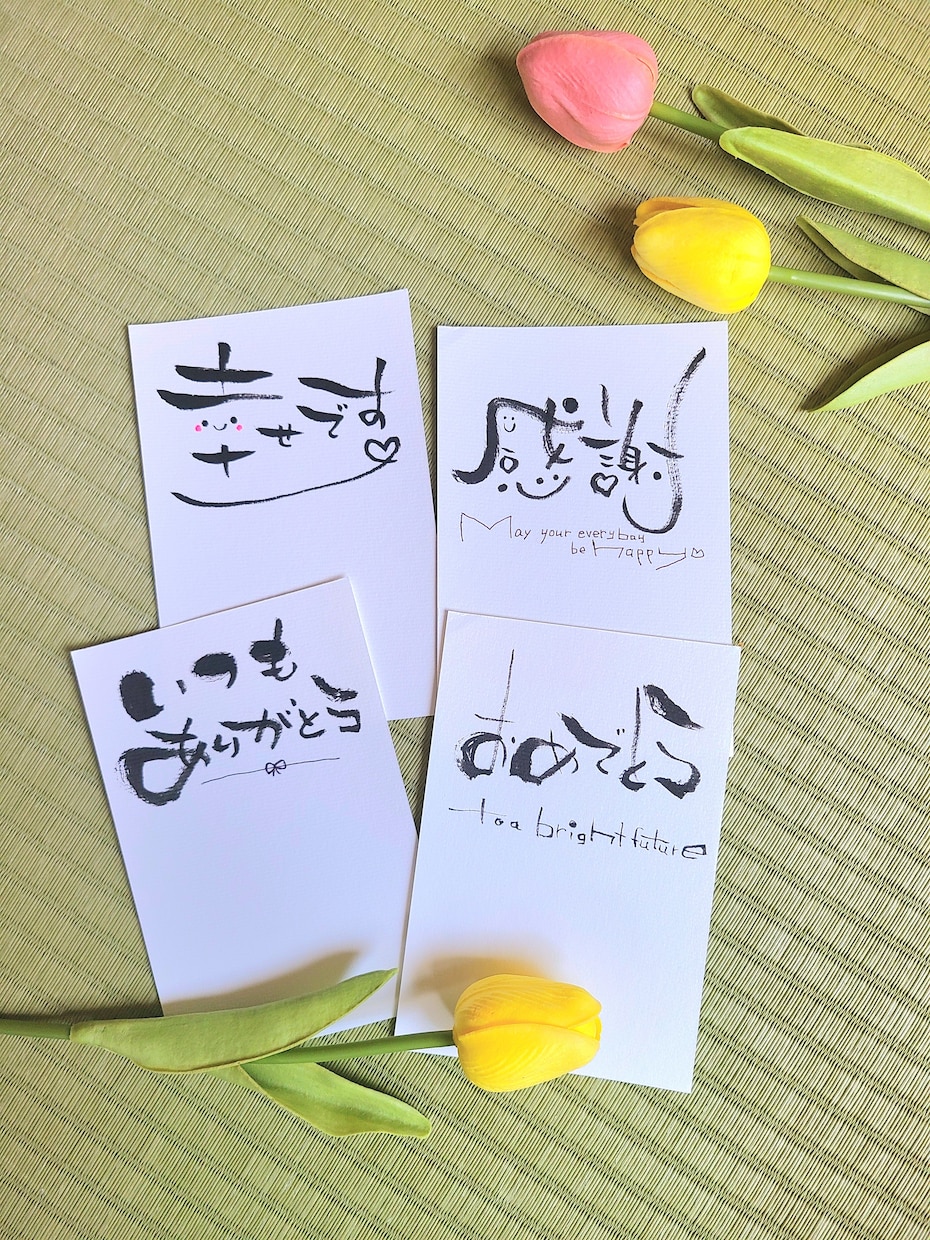 幸せです
感謝
May your everyday
be Happy
いつも
ありがとう
おめでとう
to a bright future